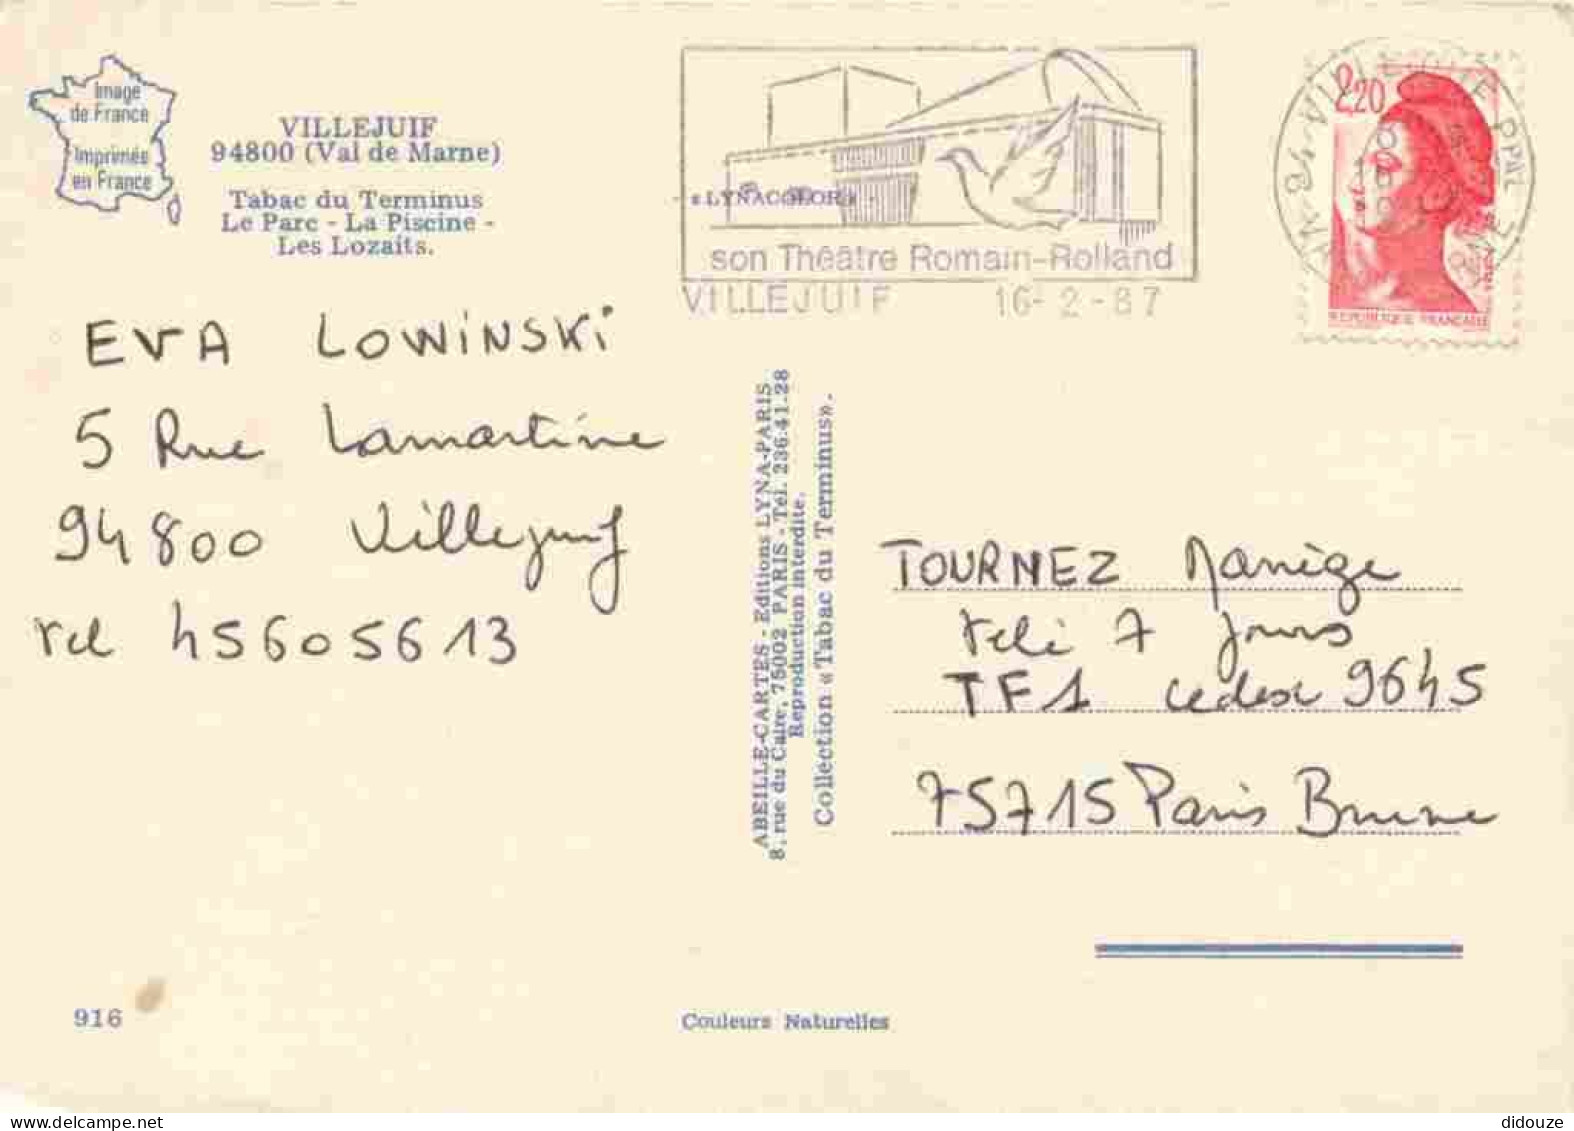 Image
de France
Imprimés
en France
VILLEJUIF
94800 (Val de Marne)
Tabac du Terminus
Le Parc - La Piscine -
Les Lozaits.
«LYNACOLOR»
son Théâtre Romain-Rolland
VILLEJUIF 16-2-87
2,20
REPUBLIQUE FRANÇAISE
EVA LOWINSKI
5 Rue Lamartine
94800 Villejuif
tel 45605613
ABEILLE-CARTES - Editions LYNA-PARIS
8, rue du Caire, 75002 PARIS - Tél. 236.41.28
Reproduction interdite.
Collection «Tabac du Terminus».
TOURNEZ Manège
teli 7 jours
TF1 cedex 9645
75715 Paris Brune
916
Couleurs Naturelles
didouze